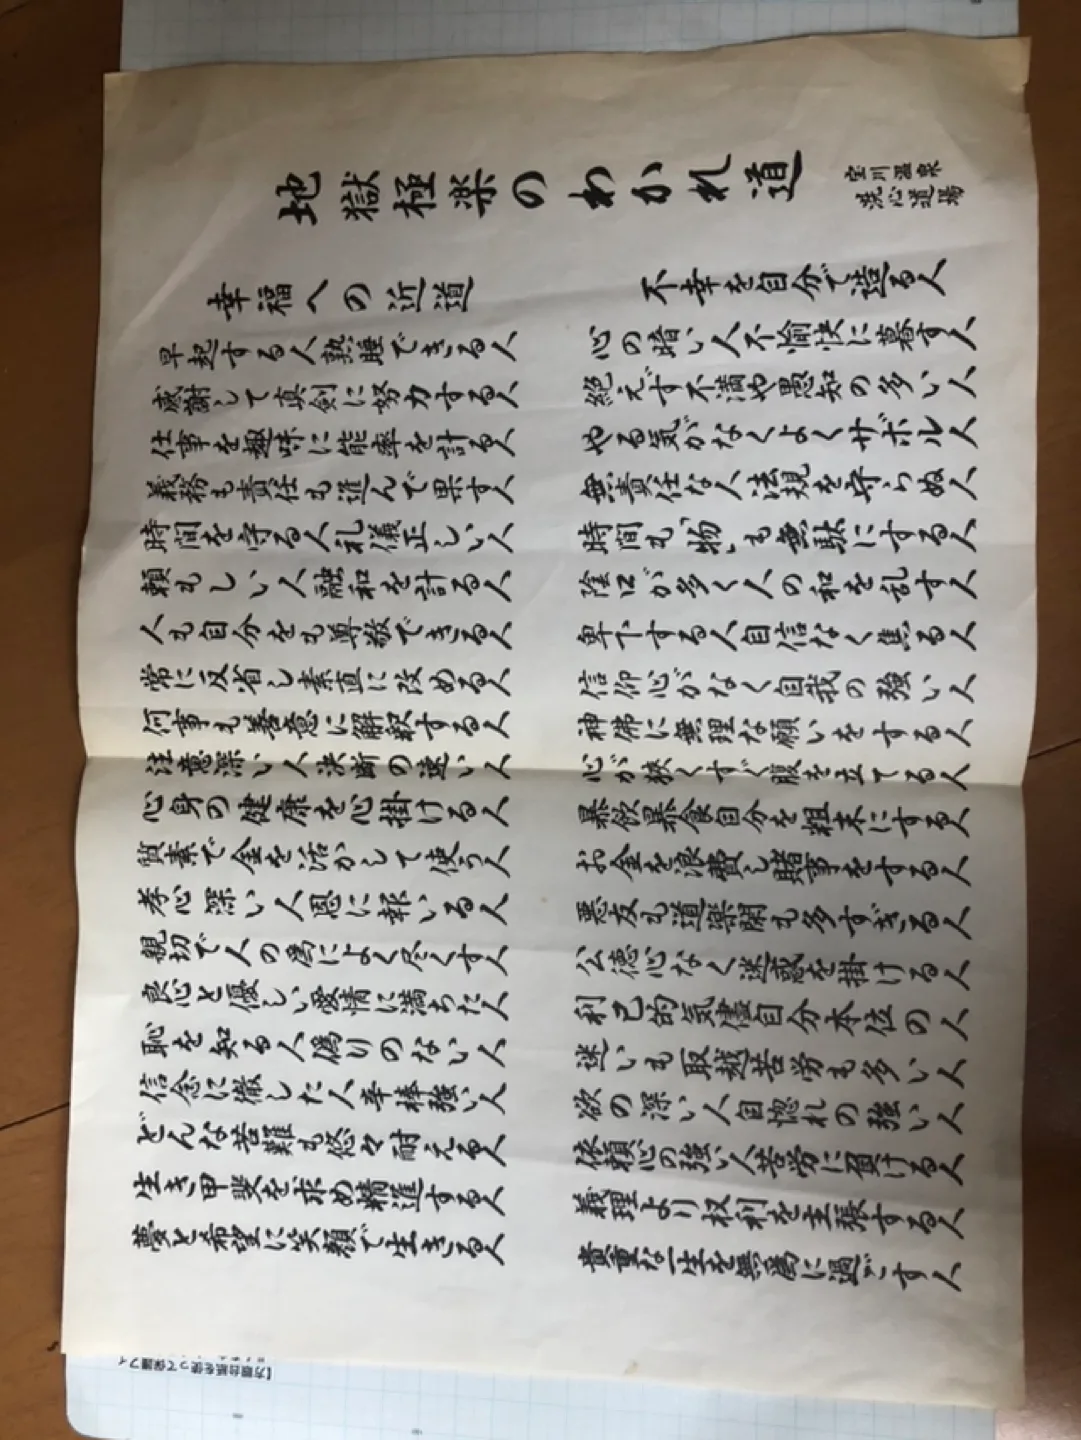 地獄極楽のわかれ道
宝川温泉
洗心道場
幸福への近道
早起する人熟睡できる人
感謝して真剣に努力する人
仕事を趣味に能率を計る人
義務も責任も進んで果す人
時間を守る人礼儀正しい人
頼もしい人融和を計る人
人も自分をも尊敬できる人
常に反省し素直に改める人
何事も善意に解釈する人
注意深い人決断の速い人
心身の健康を心掛ける人
質素で金を活かして使う人
孝心深い人恩に報いる人
親切で人の為によく尽くす人
良心と優しい愛情に満ちた人
恥を知る人偽りのない人
信念に徹した人辛棒強い人
どんな苦難も悠々耐える人
生き甲斐を求め精進する人
夢と希望に笑顔で生きる人
不幸を自分で造る人
心の暗い人不愉快に暮す人
絶えず不満や愚知の多い人
やる気がなくよくサボル人
無責任な人法規を守らぬ人
時間も「物」も無駄にする人
陰口が多く人の和を乱す人
卑下する人自信なく焦る人
信仰心がなく自我の強い人
神佛に無理な願いをする人
心が狭くすぐ腹を立てる人
暴飲暴食自分を粗末にする人
お金を浪費し賭事をする人
悪友も道楽閑も多すぎる人
公徳心なく迷惑を掛ける人
利己的気儘自分本位の人
迷いも取越苦労も多い人
欲の深い人自惚れの強い人
依頼心の強い人苦労に負ける人
義理より权利を主張する人
貴重な一生を無為に過ごす人
【方眼台紙を使って保護フィ